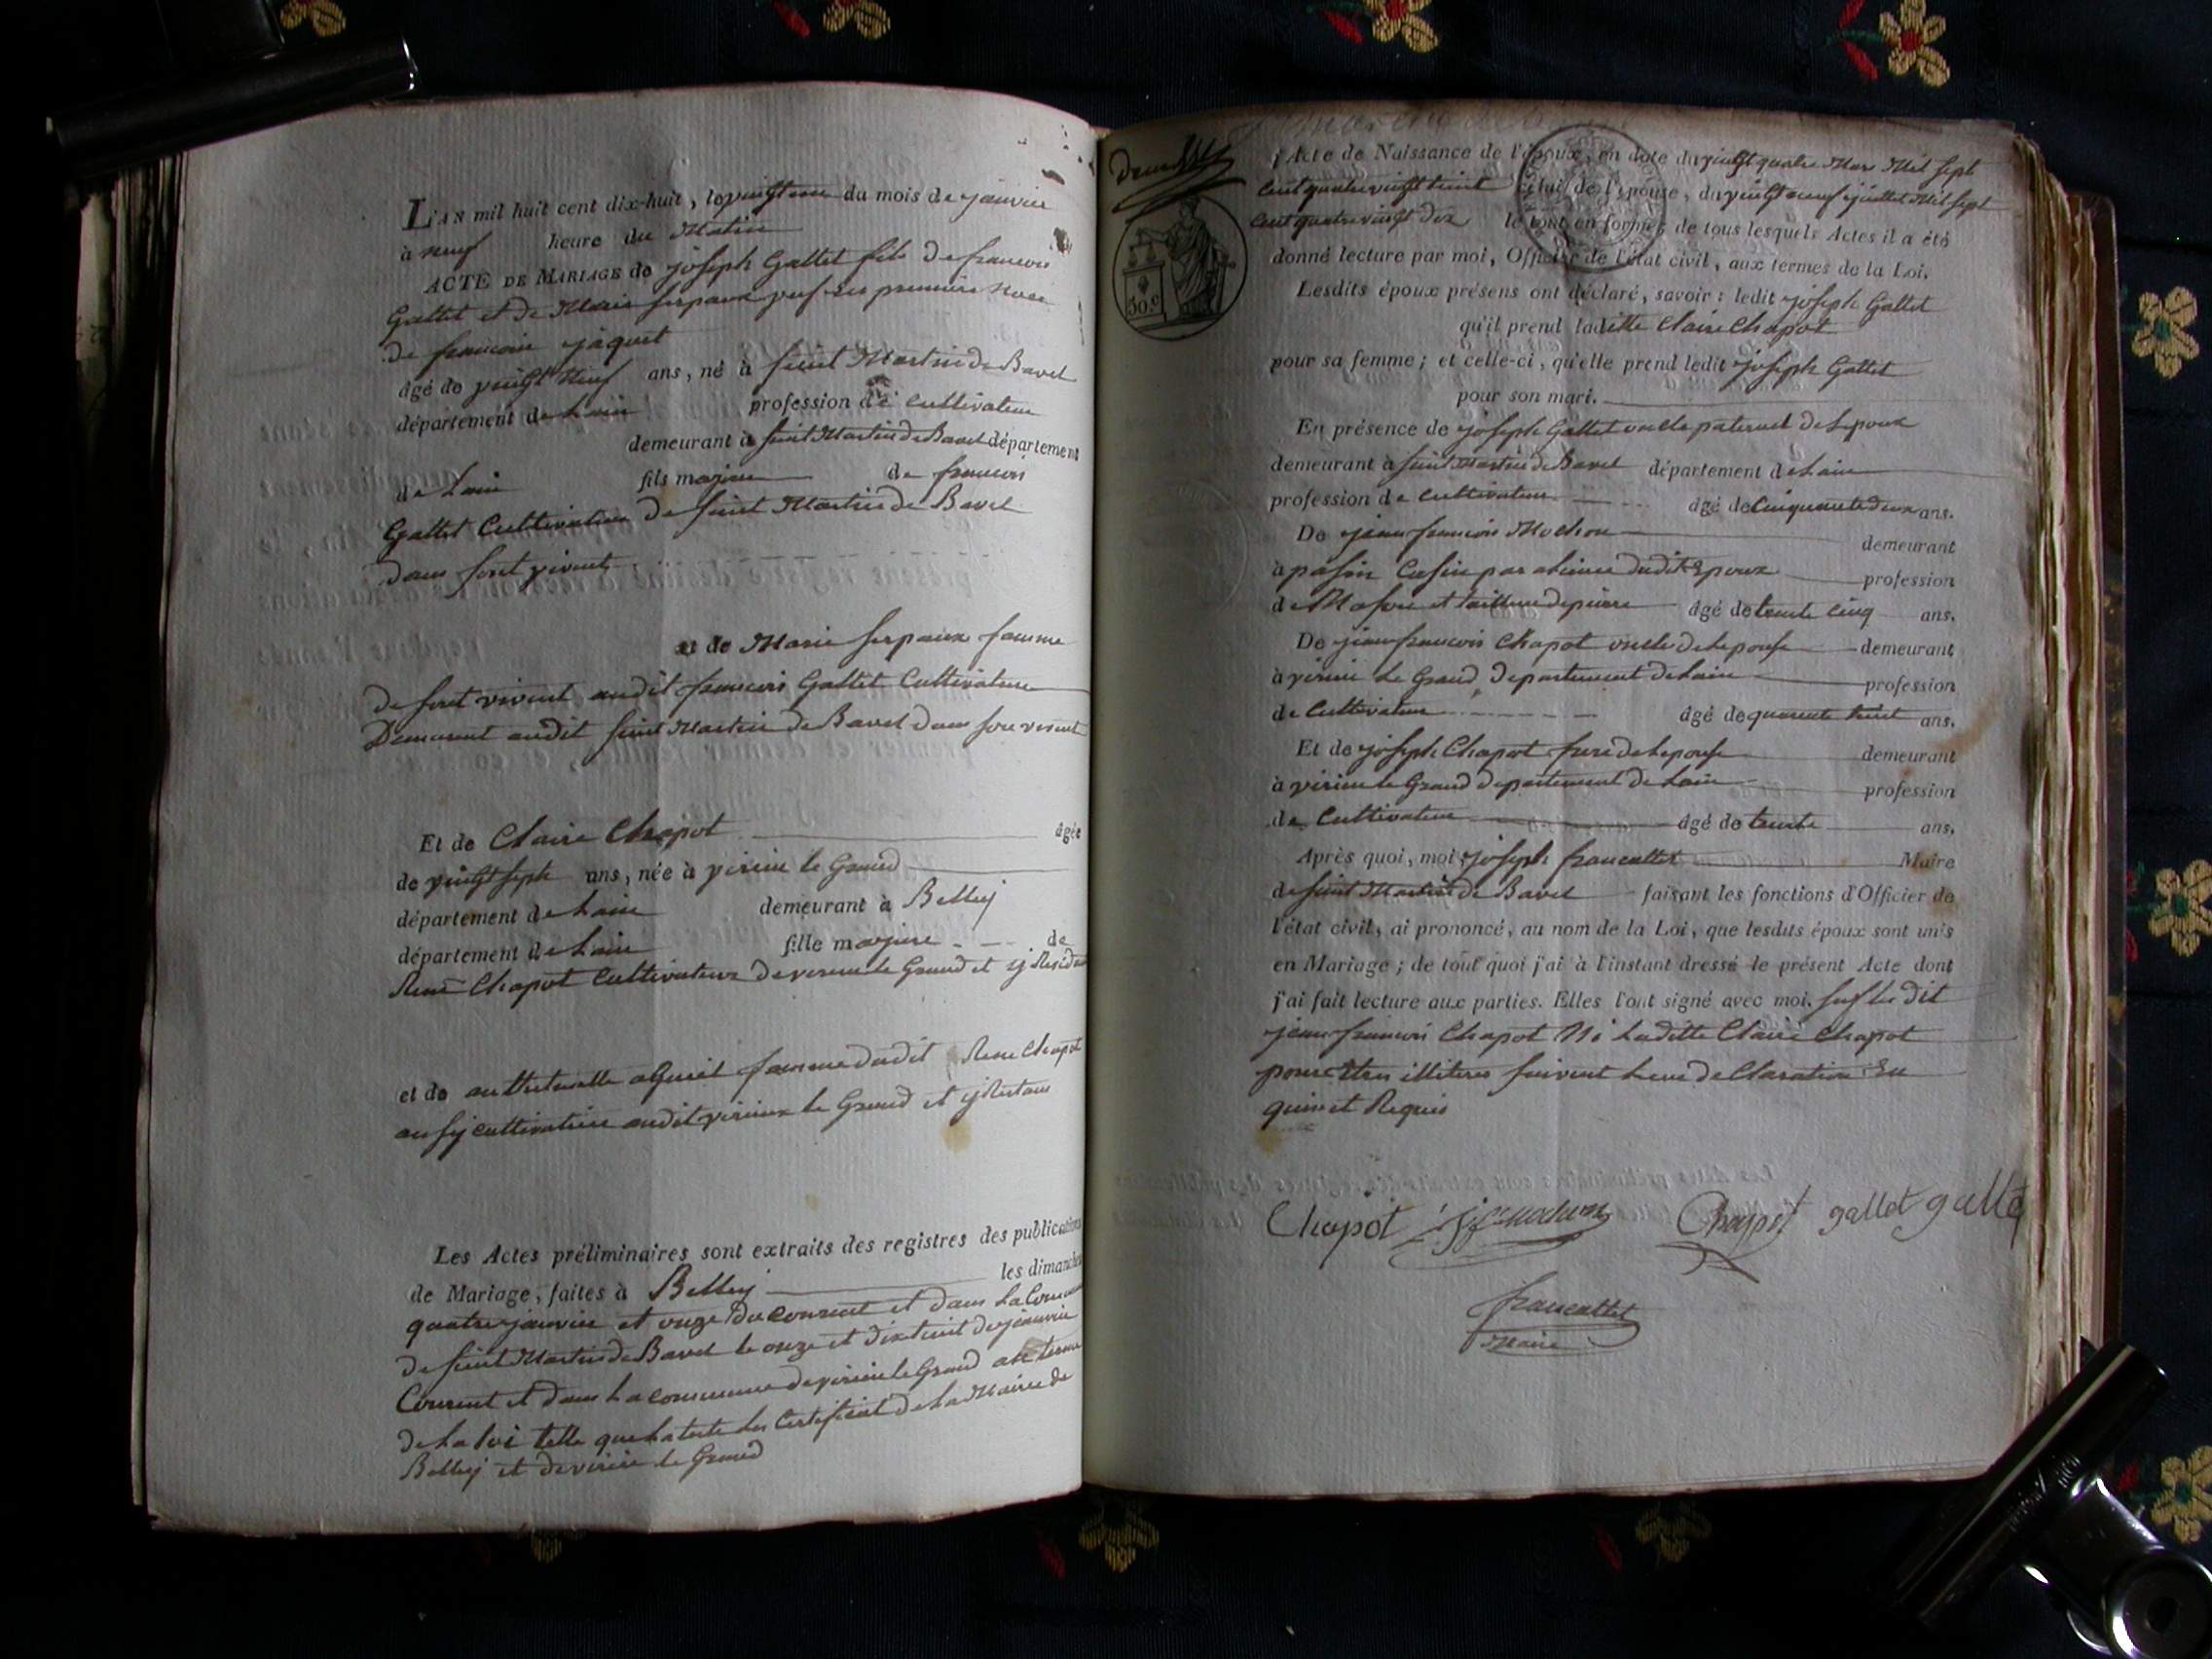 L'AN mil huit cent dix-huit, le vingt un du mois de janvier
à neuf heure du Matin
ACTE DE MARIAGE de joseph Gallet fils de francois
Gallet et de Marie Serpaux veuf en premiere Noce
de francoise jaquet
âgé de vingt Neuf ans, né à Saint Martin de Bavel
département de Lain profession de Cultivateur
demeurant à Saint Martin de Bavel département
de Lain fils majeur de francois
Gallet Cultivateur de Saint Martin de Bavel
dans son vivent
et de Marie Serpaux famme
de sont vivent audit francois Gallet Cultivateur
Demeurent audit Saint Martin de Bavel dans son vivent
Et de Claire Chapot âgée
de vingt Seph ans, née à virieu le Grand
département de Lain demeurant à Belley
département de Lain fille majeure de
Rene Chapot Cultivateur de virieu le Grand et y Resident
et de famme dudit Rene Chapot
aussy cultivatrice audit virieux le Grand et y Restant
Les Actes préliminaires sont extraits des registres des publications
de Mariage, faites à Belley les dimanches
quatre janvier et onze du courent et dans la Commune
de Saint Martin de Bavel le onze et dix huit de janvier
Courent et dans la commune de virieu le Grand au terme
de la loi telle que lateste les Certificat de la Mairie de
Belley et de virieu le Grand
50.c
Acte de Naissance de l'époux, en date du vingt quatre Mar Mil sept
cent quatre vingt huit celui de l'épouse, du vingt neuf juillet Mil sept
cent quatre vingt dix le tout en formes, de tous lesquels Actes il a été
donné lecture par moi, Officier de l'état civil, aux termes de la Loi.
Lesdits époux présens ont déclaré, savoir : ledit joseph Gallet
qu'il prend laditte Claire Chapot
pour sa femme ; et celle-ci, qu'elle prend ledit joseph Gallet
pour son mari.
En présence de joseph Gallet oncle paternel de Lepoux
demeurant à Saint Martin de Bavel département de Lain
profession de Cultivateur âgé de Cinquante deux ans.
De jean francois Mochon demeurant
à pasin Cusin par alience dudit Epoux profession
de Mason et tailleur de pierre âgé de trente cinq ans.
De jean francois Chapot oncle de Lepouse demeurant
à virieu le Grand Departement de Lain profession
de Cultivateur âgé de quarente huit ans.
Et de joseph Chapot frere de Lepouse demeurant
à virieu le Grand departement de Lain profession
de Cultivateur âgé de trente ans.
Après quoi, moi, joseph francallet Maire
de Saint Martin de Bavel faisant les fonctions d'Officier de
l'état civil, ai prononcé, au nom de la Loi, que lesdits époux sont unis
en Mariage ; de tout quoi j'ai à l'instant dressé le présent Acte dont
j'ai fait lecture aux parties. Elles l'ont signé avec moi. Sufs le dit
jean francois Chapot Ni Laditte Claire Chapot
pour etre illiteres suivent leur declaration En
quis et Requis
Chapot jf mochon Chapot gallet gallet
francallet
Maire